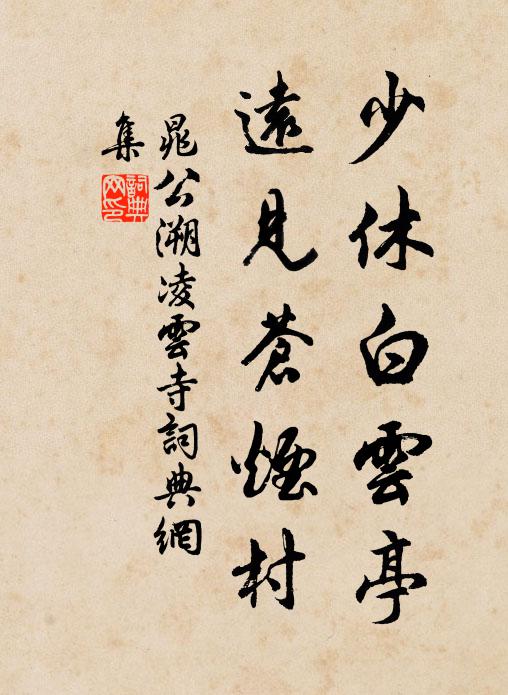 少休白雲亭
遠見蒼煙村
晁公溯凌雲寺詞典網
集
詞典網印